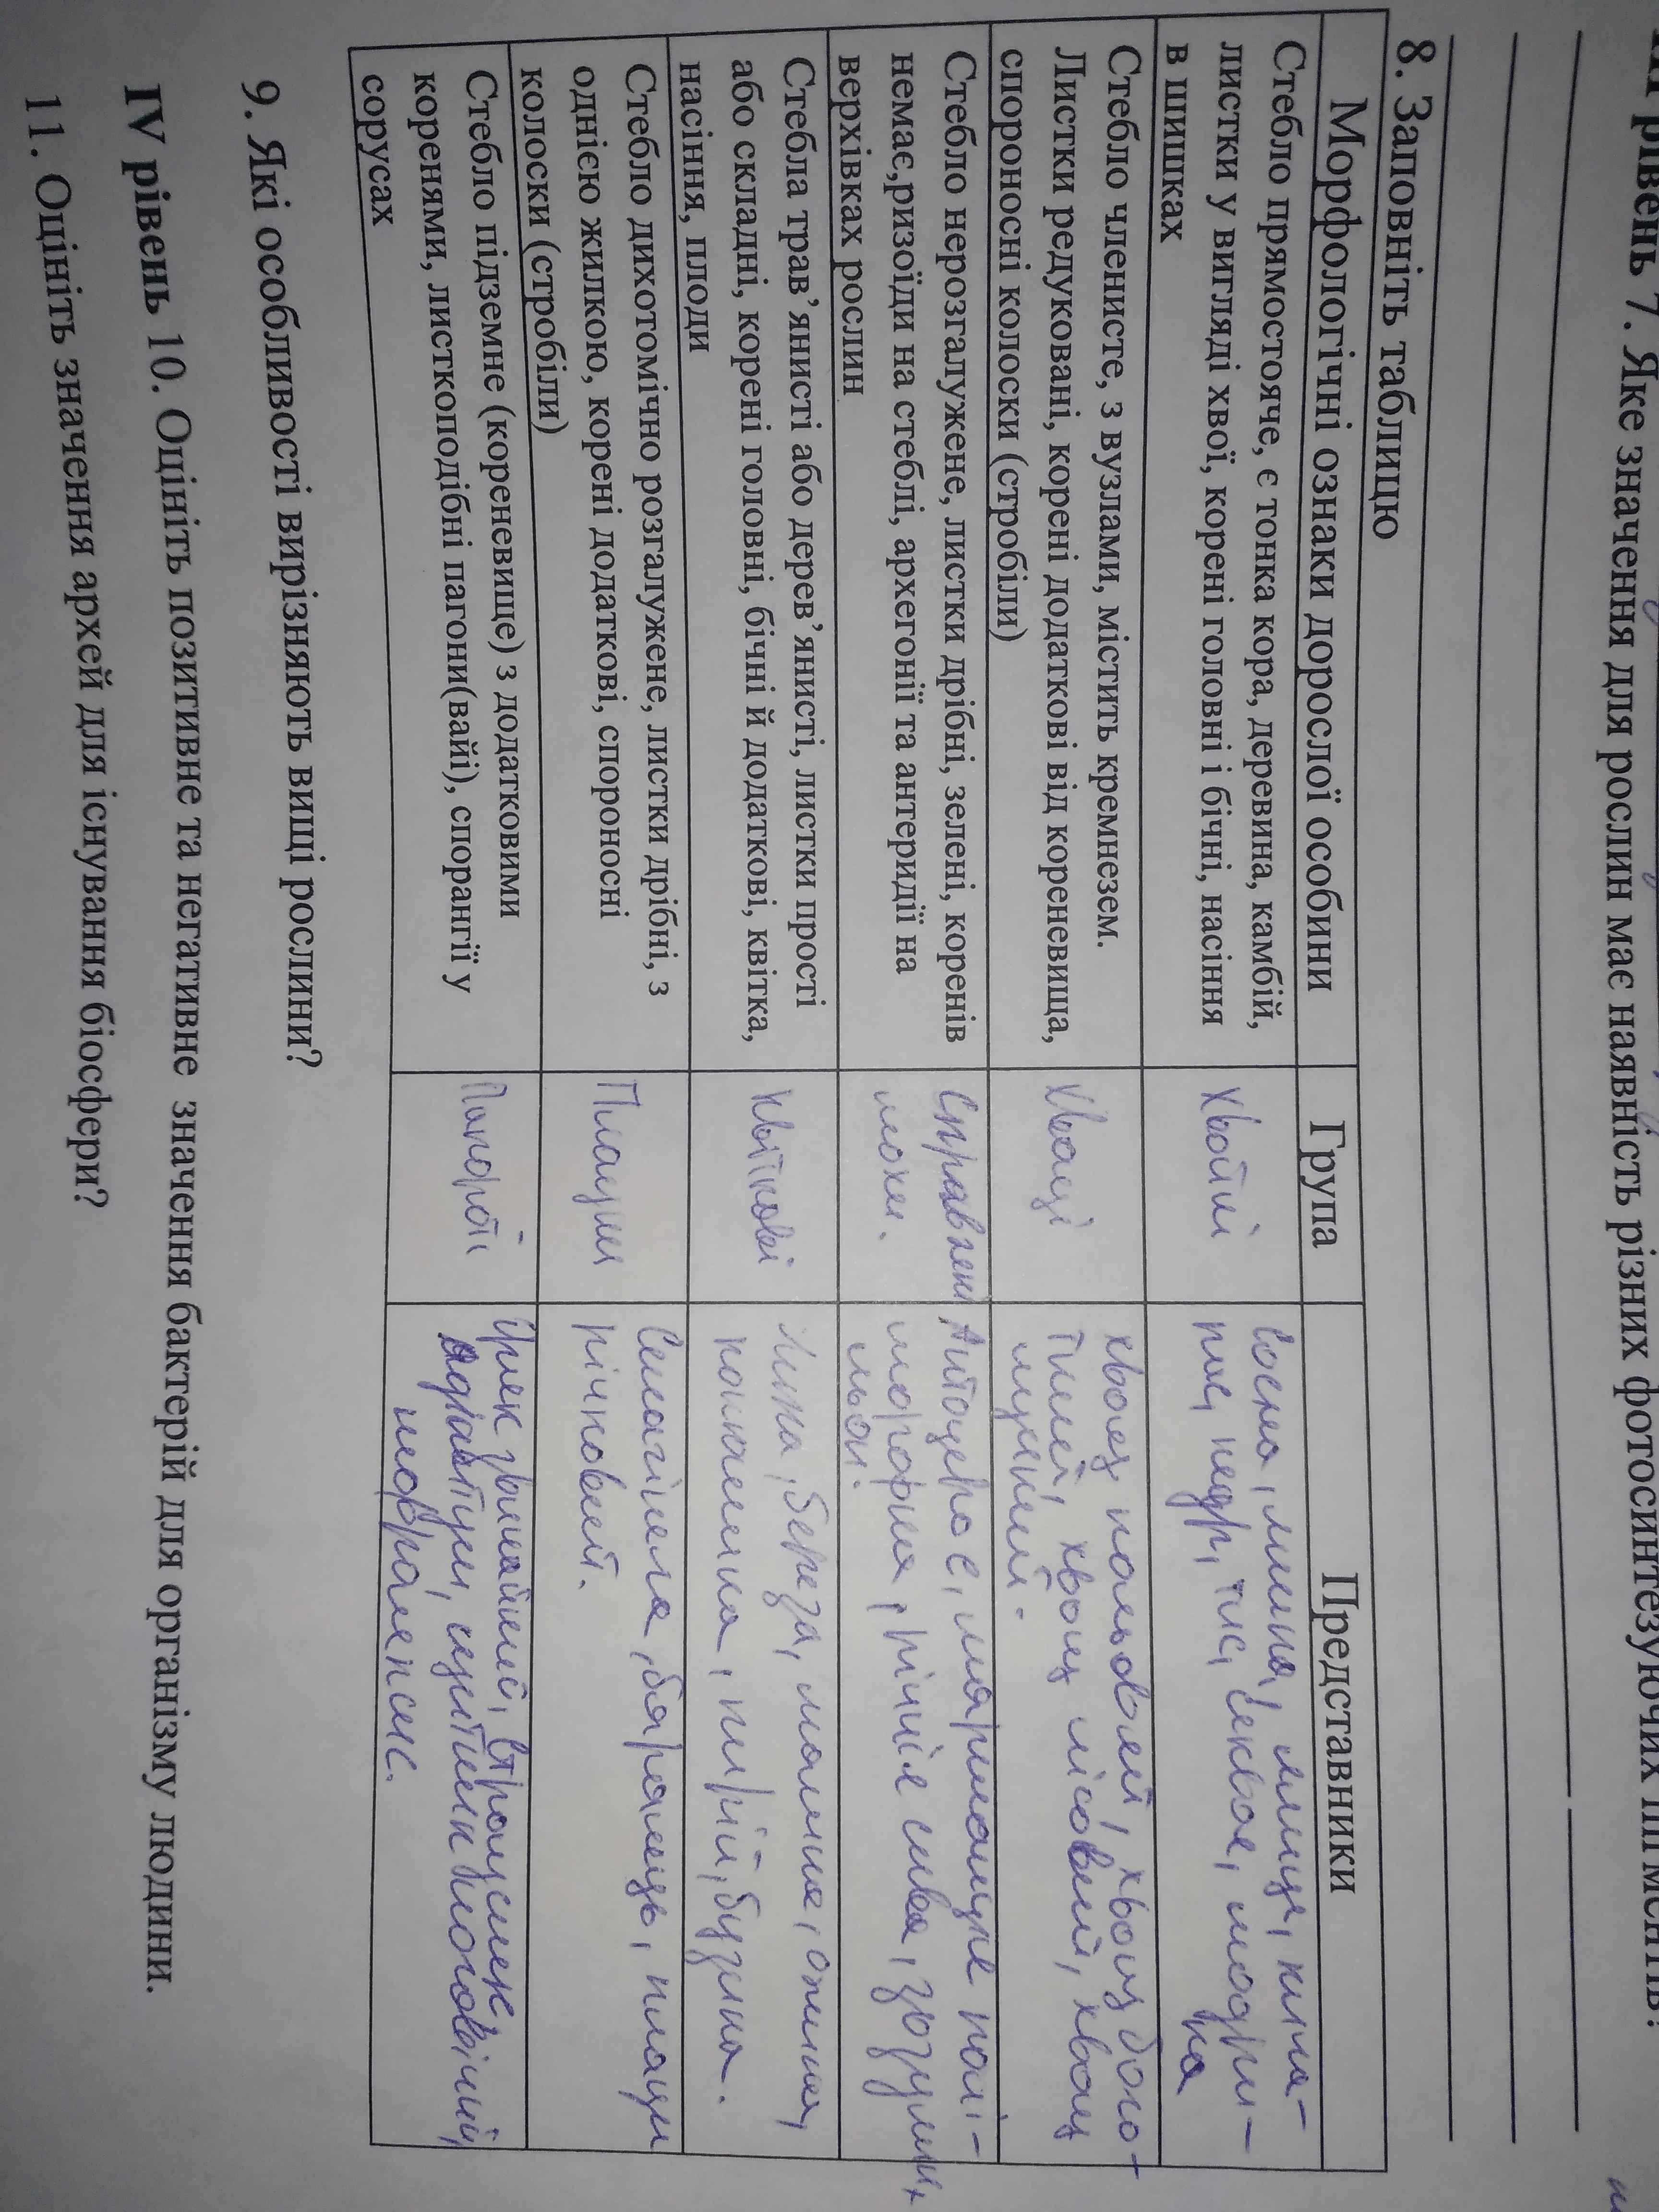 рівень 7. Яке значення для рослин має наявність різних фотосинтезуючих пігментів?
8. Заповніть таблицю
Морфологічні ознаки дорослої особини
Група
Представники
Стебло прямостояче, є тонка кора, деревина, камбій,
листки у вигляді хвої, корені головні і бічні, насіння
в шишках
Хвойні
Сосна, ялина, ялиця, кипа-
рис, кедр, тис, секвоя, модри-
на
Стебло членисте, з вузлами, містить кремнезем.
Листки редуковані, корені додаткові від кореневища,
спороносні колоски (стробіли)
Хвощі
хвощ польовий, хвощ боло-
тний, хвощ лісовий, хвощ
лучний.
Стебло нерозгалужене, листки дрібні, зелені, коренів
немає,ризоїди на стеблі, архегонії та антеридії на
верхівках рослин
Справжні
мохи.
Антоцерос, маршанція полі-
морфна, річчія сива, зозулин
льон.
Стебла трав’янисті або дерев’янисті, листки прості
або складні, корені головні, бічні й додаткові, квітка,
насіння, плоди
Квіткові
Липа, береза, малина, ожина,
конюшина, пирій, бузина.
Стебло дихотомічно розгалужене, листки дрібні, з
однією жилкою, корені додаткові, спороносні
колоски (стробіли)
Плауни
Селагінела, баранець, плаун
річковий.
Стебло підземне (кореневище) з додатковими
коренями, листкоподібні пагони(вайї), спорангії у
сорусах
Папороті
звичайний, страусник
адіантум, щитник чоловічий,
нефролепис.
9. Які особливості вирізняють вищі рослини?
IV рівень 10. Оцініть позитивне та негативне значення бактерій для організму людини.
11. Оцініть значення архей для існування біосфери?